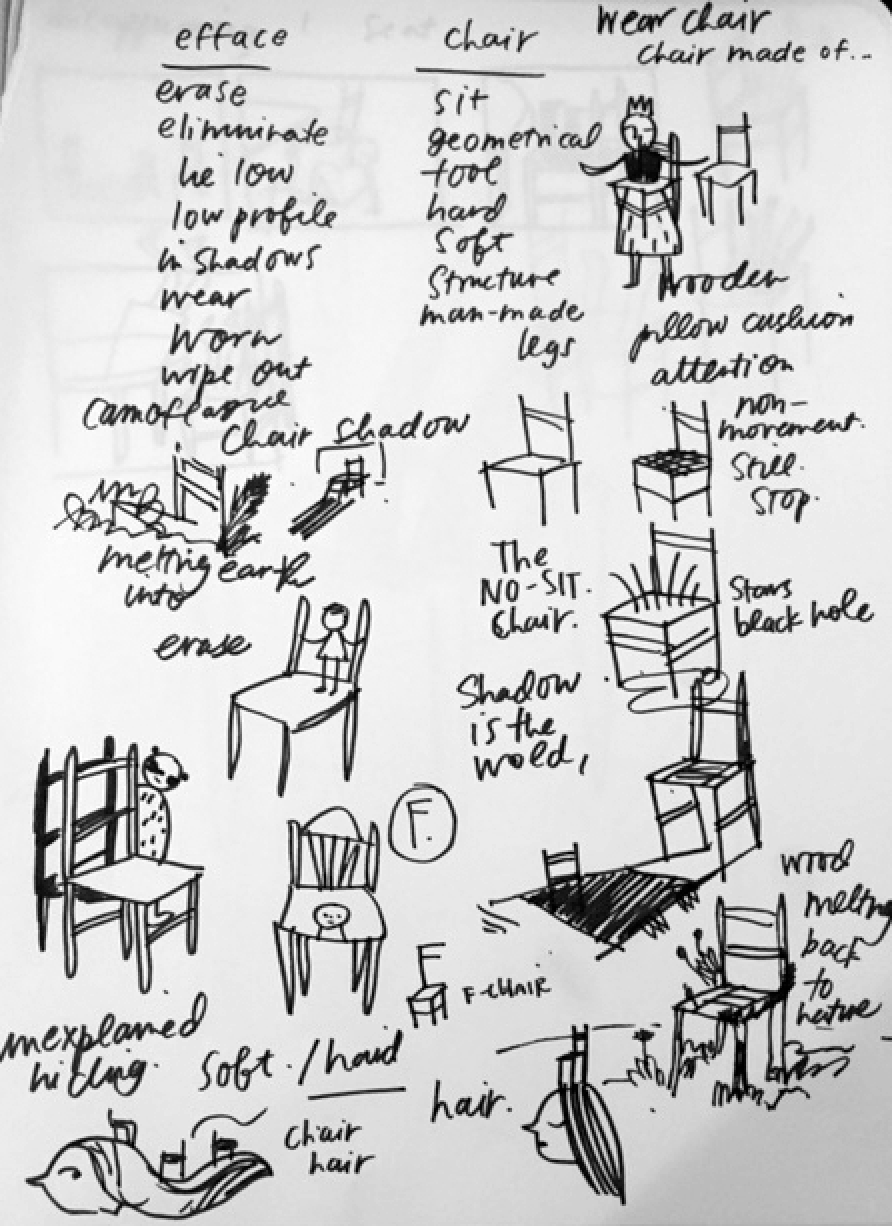 efface
erase
eliminate
lie low
low profile
in shadows
wear
worn
wipe out
camoflague
chair
sit
geometrical
tool
hard
soft
structure
man-made
legs
wear chair
chair made of...
wooden
pillow cushion
attention
non-
movement.
Still.
STOP.
Chair shadow
melting earth
into
erase
The
NO-SIT.
Chair.
Stars
black hole
Shadow
is the
wold,
F.
F-CHAIR
wood
melting
back
to
nature
unexplained
hiding.
soft / hard
hair.
chair
hair